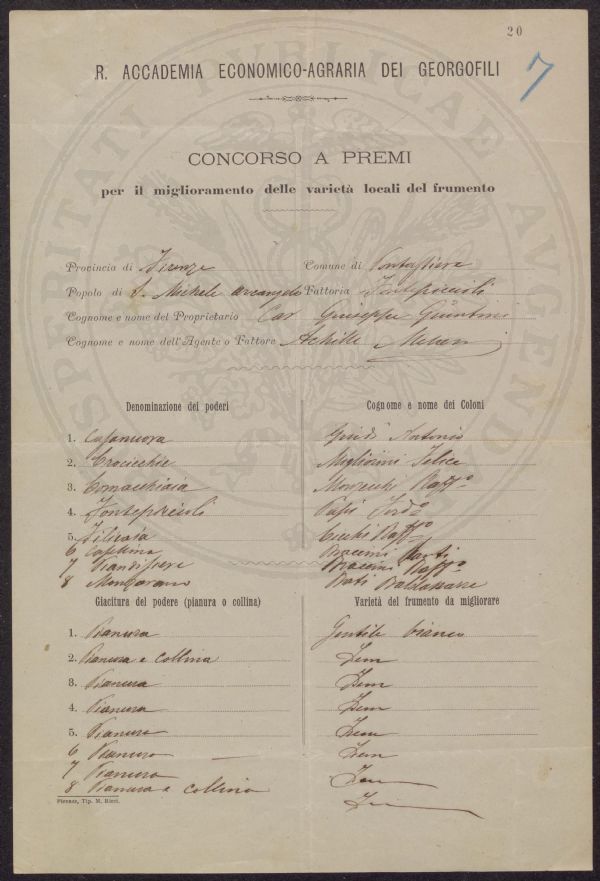 20
7
R. ACCADEMIA ECONOMICO-AGRARIA DEI GEORGOFILI
CONCORSO A PREMI
per il miglioramento delle varietà locali del frumento
Provincia di Firenze Comune di Pontassieve
Popolo di S. Michele Arcangelo Fattoria Fontepiccioli
Cognome e nome del Proprietario Cav Giuseppe Giuntini
Cognome e nome dell'Agente o Fattore Achille
Denominazione dei poderi Cognome e nome dei Coloni
1. Casanuova Guidi Antonio
2. Crocicchie Migliorini Felice
3. Raffo
4.
5. Filicaia Cecchi Raffo
6 Capellina
7 Raffo
8 Baldassarre
Giacitura del podere (pianura o collina) Varietà del frumento da migliorare
1. Pianura Gentile bianco
2. Pianura e collina Idem
3. Pianura Idem
4. Pianura Idem
5. Pianura Idem
6 Pianura Idem
7 Pianura
8 Pianura e collina
Firenze, Tip. M. Ricci.